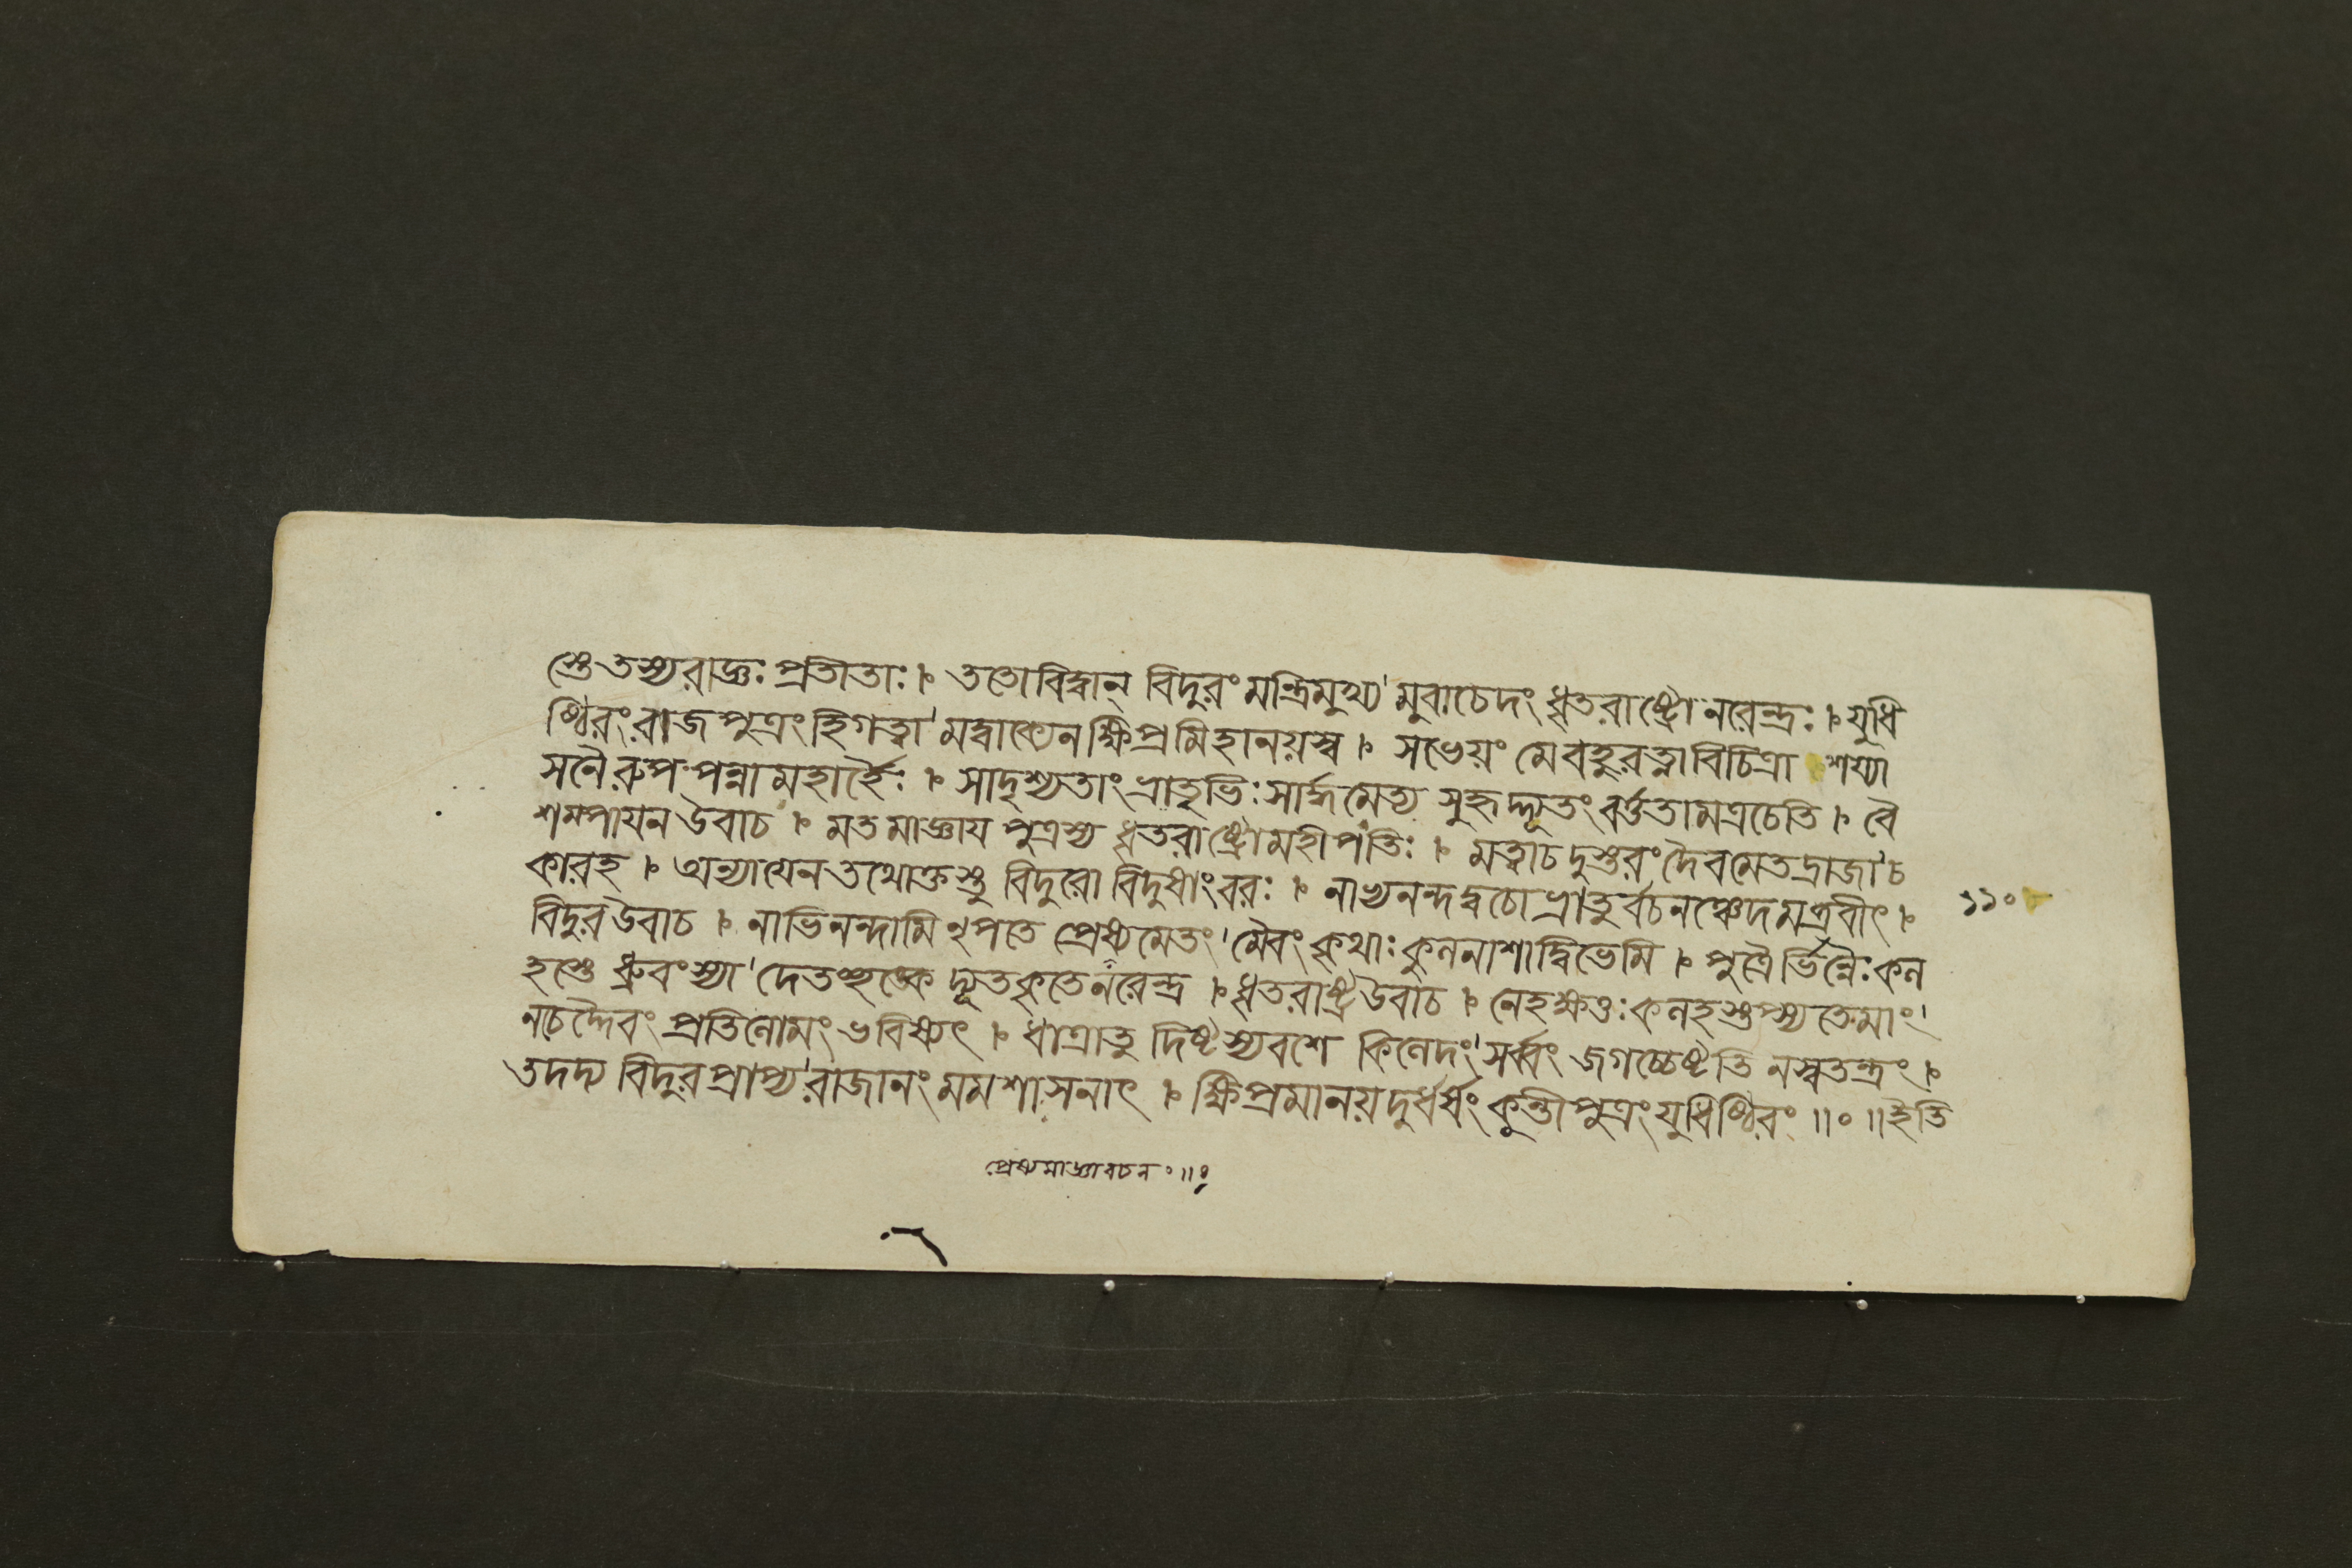 স্তে তস্য রাজ্ঞঃ প্রতীতাঃ । ততো বিদ্বান্ বিদুরং মন্ত্রিমুখ্য মুবাচেদং ধৃতরাষ্ট্রো নরেন্দ্রঃ । যুধি
ষ্ঠিরং রাজপুত্রং হি গত্বা মদ্বাক্যেন ক্ষিপ্রমিহানয়স্ব । সভেয়ং মে বহুরত্না বিচিত্রা শয্যা
সনৈরুপপন্না মহার্হৈঃ । সা দৃশ্যতাং ভ্রাতৃভিঃ সার্দ্ধমেত্য সুহৃদ্দ্যূতং বর্ত্ততামত্র চেতি । বৈ
শম্পায়ন উবাচ । মতমাজ্ঞায় পুত্রস্য ধৃতরাষ্ট্রো মহীপতিঃ । মত্বা চ দুস্তরং দৈবমেতদ্রাজা চ
কার হ । অন্যায়েন তথোক্তস্তু বিদুরো বিদুষাং বরঃ । নাভ্যনন্দদ্বচো ভ্রাতুর্বচনঞ্চেদমব্রবীৎ ।
১১০
বিদুর উবাচ । নাভিনন্দামি নৃপতে প্রেষ্যমেতং মৈবং কৃথাঃ কুলনাশাদ্বিভেমি । পুত্রৈর্ভিন্নৈঃ কল
হস্তে ধ্রুবং স্যা দেতচ্ছঙ্কে দ্যূতকৃতে নরেন্দ্র । ধৃতরাষ্ট্র উবাচ । নেহ ক্ষত্তঃ কলহস্তপ্স্যতে মাং
ন চেদ্দৈবং প্রতিলোমং ভবিষ্যৎ । ধাত্রা তু দিষ্টস্য বশে কিলেদং সর্ব্বং জগচ্চেষ্টতি ন স্বতন্ত্রং ।
তদদ্য বিদুর প্রাপ্য রাজানং মম শাসনাৎ । ক্ষিপ্রমানয় দুর্ধর্ষং কুন্তীপুত্রং যুধিষ্ঠিরং ॥०॥ ইতি